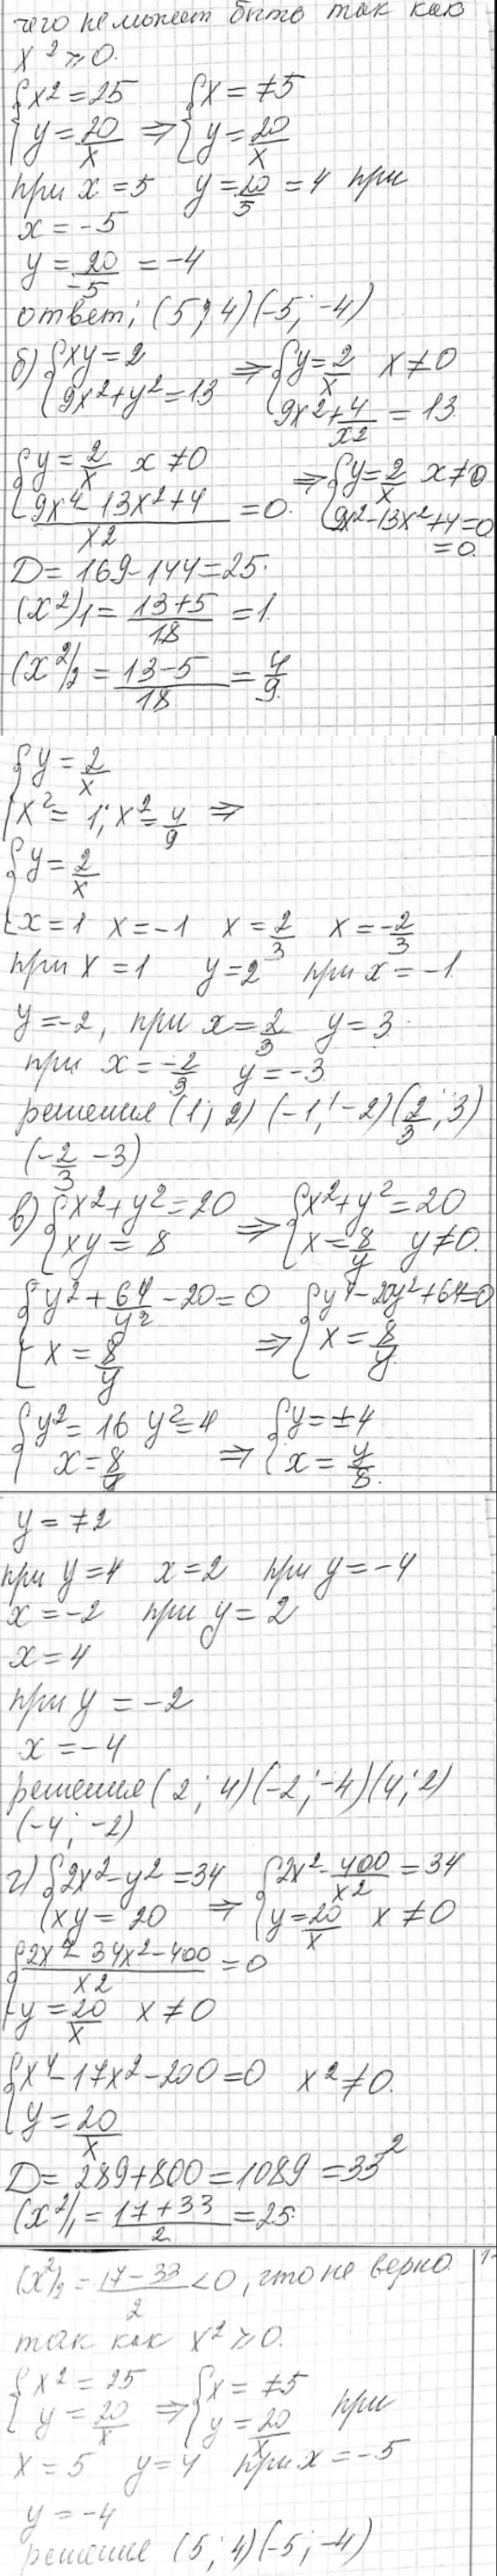 чего не может быть так как
x² ≥ 0.
{x² = 25 {x = ∓5
{y = 20/x ⇒ {y = 20/x
при x = 5 y = 20/5 = 4 при
x = -5
y = 20/-5 = -4
ответ: (5; 4) (-5; -4)
б) {xy = 2 ⇒ {y = 2/x x ≠ 0
{9x² + y² = 13 {9x² + 4/x2 = 13
{y = 2/x x ≠ 0 ⇒ {y = 2/x x ≠ 0
{9x⁴ - 13x² + 4/x2 = 0. {9x² - 13x² + 4 = 0
= 0.
D = 169 - 144 = 25.
(x²)1 = 13+5/18 = 1.
(x²)2 = 13-5/18 = 4/9
{y = 2/x
{x² = 1; x² = 4/9 ⇒
{y = 2/x
{x = 1 x = -1 x = 2/3 x = -2/3
при x = 1 y = 2 при x = -1
y = -2, при x = 2/3 y = 3
при x = -2/3 y = -3
решения (1; 2) (-1; -2) (2/3; 3)
(-2/3 -3)
в) {x² + y² = 20 ⇒ {x² + y² = 20
{xy = 8 {x = 8/y y ≠ 0.
{y² + 64/y² - 20 = 0 {y⁴ - 20y² + 64 = 0
{x = 8/y ⇒ {x = 8/y
{y² = 16 y² = 4 {y = ±4
{x = 8/y ⇒ {x = y/8.
y = ∓2
при y = 4 x = 2 при y = -4
x = -2 при y = 2
x = 4
при y = -2
x = -4
решения (2; 4) (-2; -4) (4; 2)
(-4; -2)
г) {2x² - y² = 34 ⇒ {2x² - 400/x2 = 34
{xy = 20 {y = 20/x x ≠ 0
{2x⁴ - 34x² - 400/x2 = 0
{y = 20/x x ≠ 0
{x⁴ - 17x² - 200 = 0 x² ≠ 0.
{y = 20/x
D = 289 + 800 = 1089 = 33²
(x²)1 = 17+33/2 = 25.
(x²)2 = 17-33/2 < 0, что не верно
так как x² ≥ 0.
{x² = 25 ⇒ {x = ∓5 при
{y = 20/x {y = 20/x
x = 5 y = 4 при x = -5
y = -4
решение (5; 4) (-5; -4)